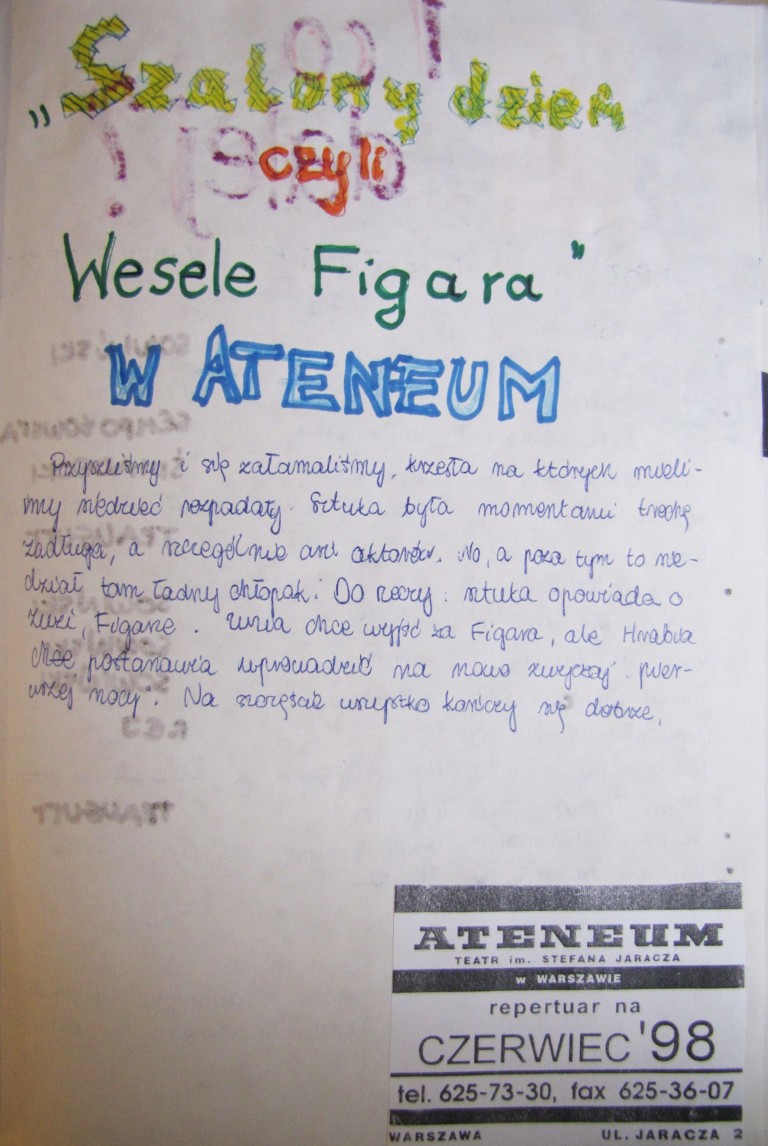 „Szalony dzień
czyli
Wesele Figara"
W ATENEUM
Przyszliśmy i się załamaliśmy, krzesła na których mieli-
śmy siedzieć rozpadały. Sztuka była momentami trochę
zadługa, a szczególnie aktorów. No, a poza tym to sie-
dział tam ładny chłopak. Do rzeczy: sztuka opowiada o
Zuzi, Figarze. Zuzia chce wyjść za Figara, ale Hrabia
chce postanawia wprowadzić na nowo zwyczaj "pier-
wszej nocy". Na szczęście wszystko kończy się dobrze.
SOWIŃSKI
TRAUGUTT
ATENEUM
TEATR im. STEFANA JARACZA
w WARSZAWIE
repertuar na
CZERWIEC '98
tel. 625-73-30, fax 625-36-07
WARSZAWA UL. JARACZA 2